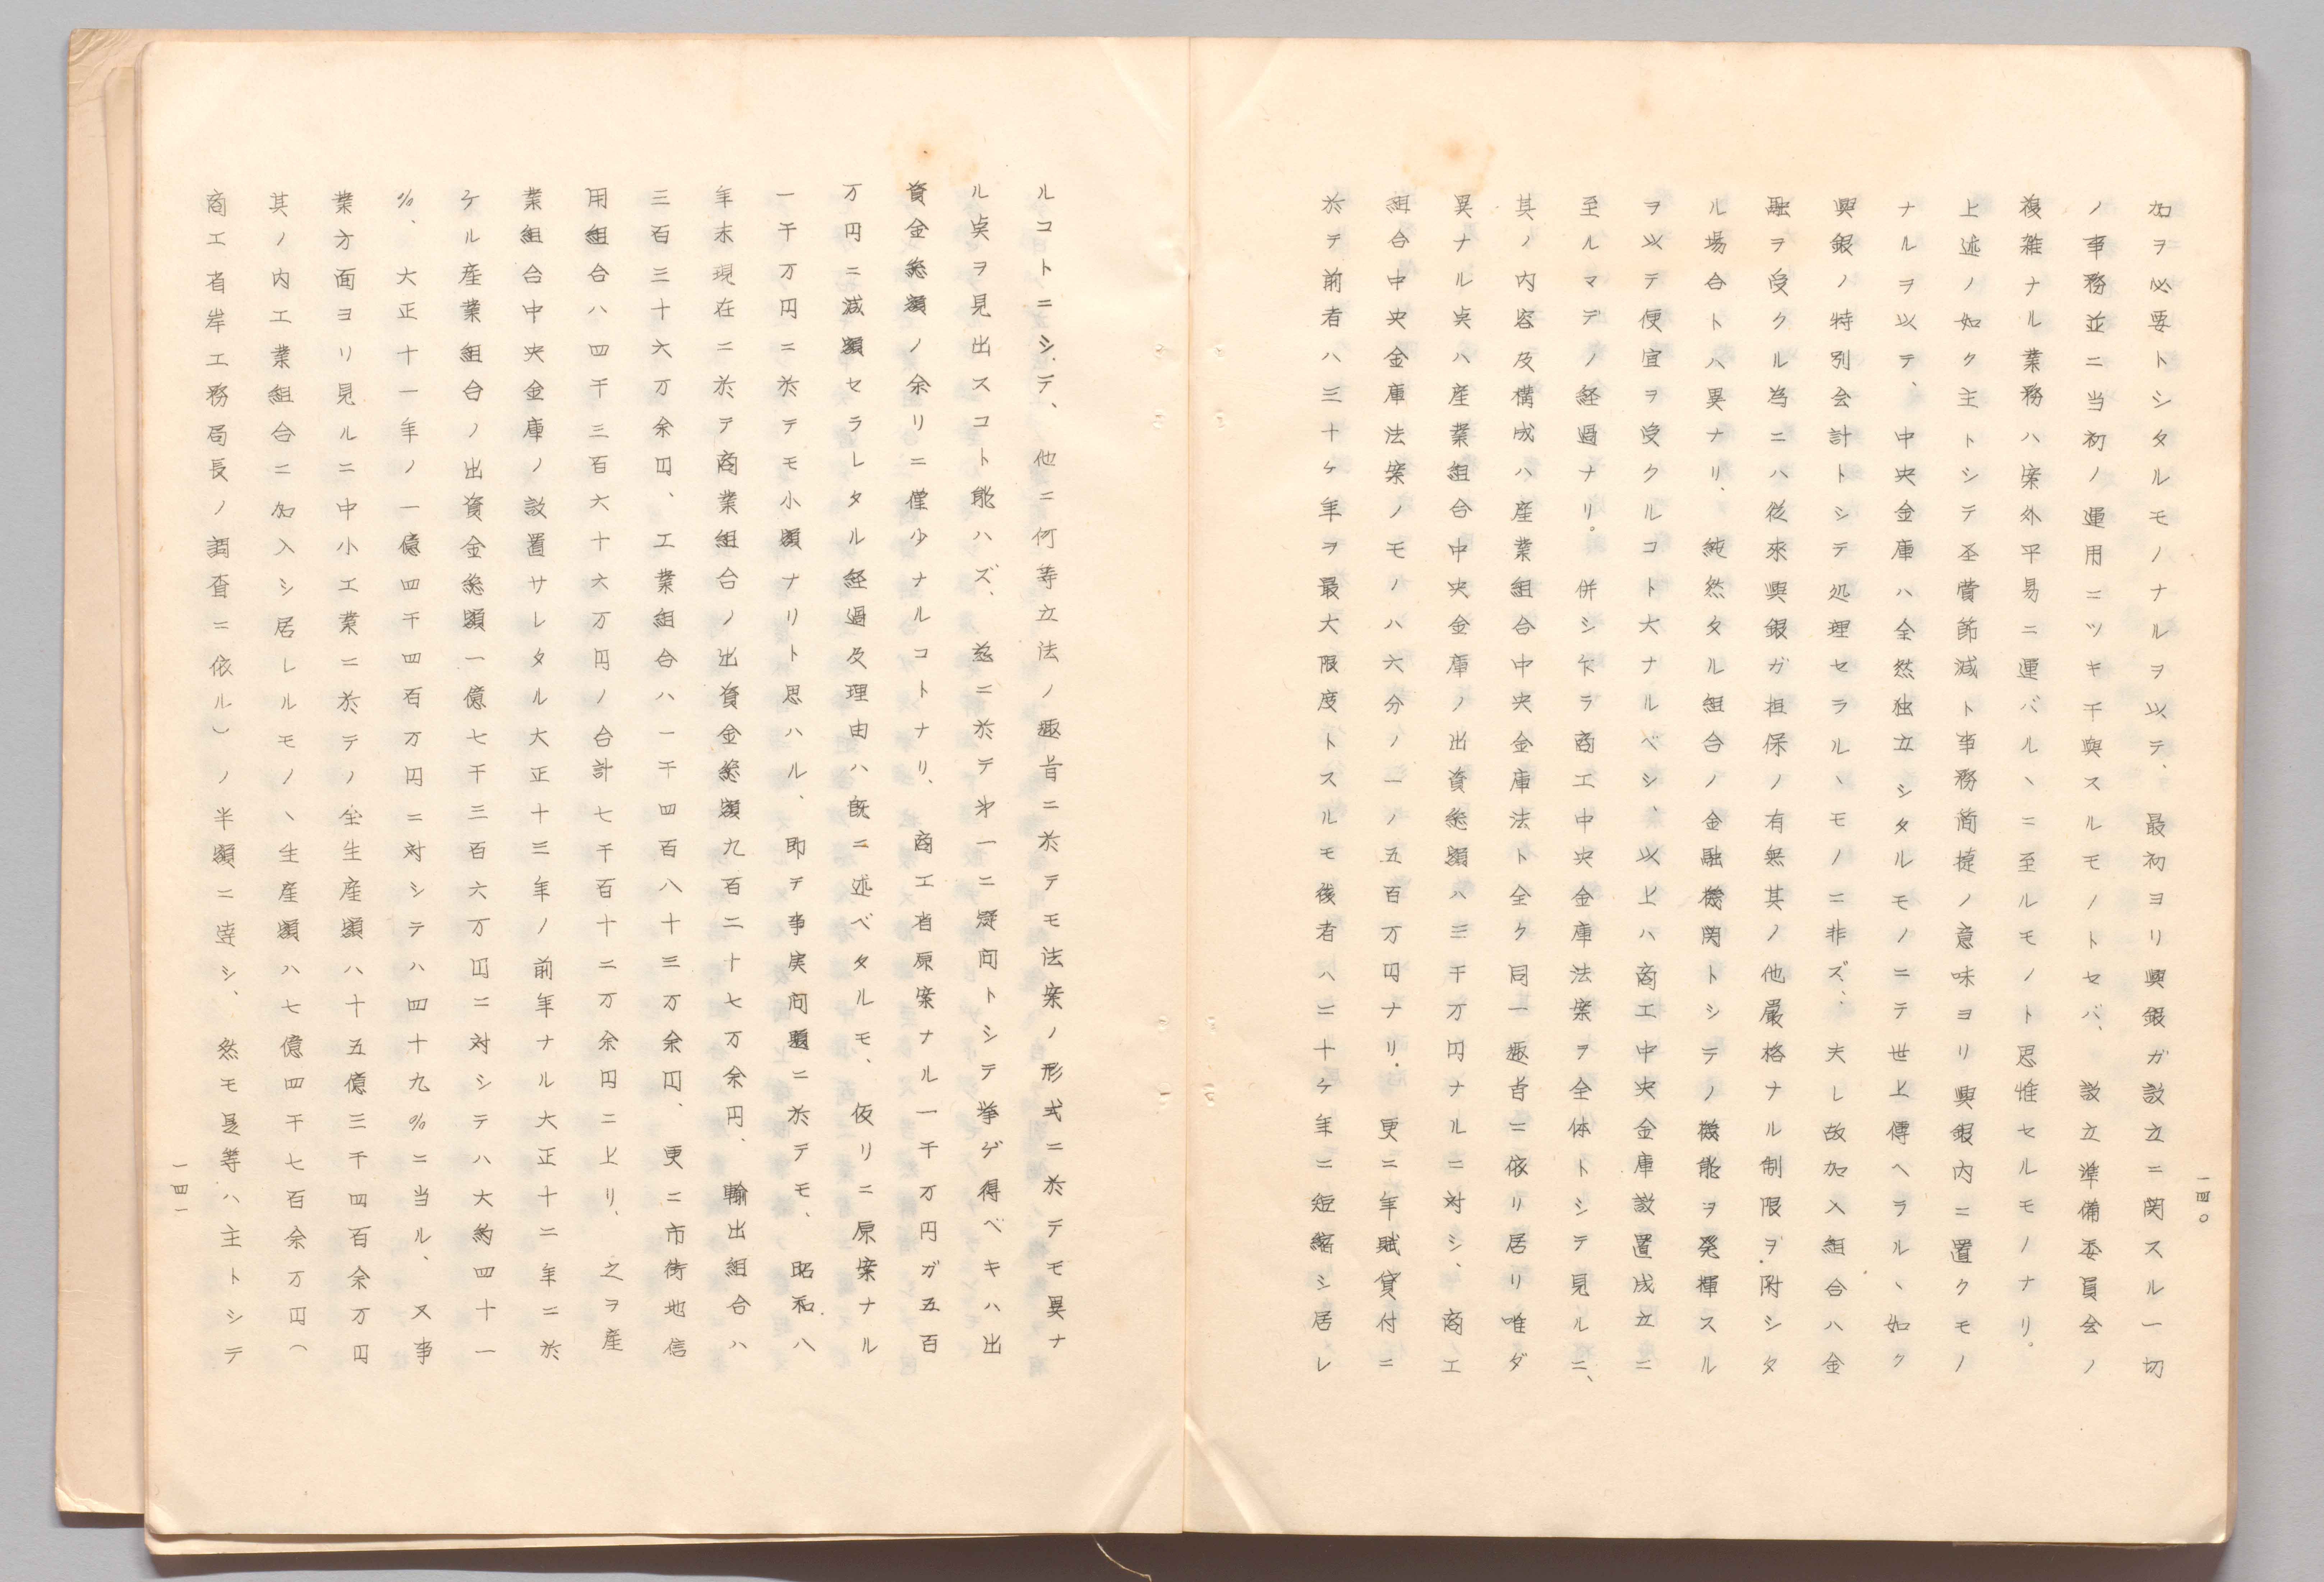 加ヲ必要トシタルモノナルヲ以テ、最初ヨリ興銀ガ設立ニ関スル一切
ノ事務並ニ当初ノ運用ニツキ干與スルモノトセバ、設立準備委員会ノ
複雑ナル業務ハ案外平易ニ運バルヽニ至ルモノト思惟セルモノナリ。
上述ノ如ク主トシテ圣費節減ト事務簡捷ノ意味ヨリ興銀内ニ置クモノ
ナルヲ以テ、中央金庫ハ全然独立シタルモノニテ世上傳ヘラルヽ如ク
興銀ノ特別会計トシテ処理セラルヽモノニ非ズ、夫レ故加入組合ハ金
融ヲ受クル為ニハ従來興銀ガ担保ノ有無其ノ他嚴格ナル制限ヲ附シタ
ル場合トハ異ナリ、純然タル組合ノ金融機関トシテノ機能ヲ発揮スル
ヲ以テ便宜ヲ受クルコト大ナルベシ、以上ハ商工中央金庫設置成立ニ
至ルマデノ経過ナリ。併シ乍ラ商工中央金庫法案ヲ全体トシテ見ルニ、
其ノ内容及構成ハ産業組合中央金庫法ト全ク同一趣旨ニ依リ居リ唯ダ
異ナル点ハ産業組合中央金庫ノ出資総額ハ三千万円ナルニ対シ、商工
組合中央金庫法案ノモノハ六分ノ一ノ五百万円ナリ、更ニ年賦貸付ニ
於テ前者ハ三十ケ年ヲ最大限度トスルモ後者ハ二十ケ年ニ短縮シ居レ
一四〇
ルコトニシテ、他ニ何等立法ノ趣旨ニ於テモ法案ノ形式ニ於テモ異ナ
ル点ヲ見出スコト能ハズ、玆ニ於テ第一ニ疑問トシテ挙ゲ得ベキハ出
資金総額ノ余リニ僅少ナルコトナリ、商工省原案ナル一千万円ガ五百
万円ニ減額セラレタル経過及理由ハ既ニ述ベタルモ、仮リニ原案ナル
一千万円ニ於テモ小額ナリト思ハル、即チ事実問題ニ於テモ、昭和八
年末現在ニ於テ商業組合ノ出資金総額九百二十七万余円、輸出組合ハ
三百三十六万余円、工業組合ハ一千四百八十三万余円、更ニ市街地信
用組合ハ四千三百六十六万円ノ合計七千百十二万余円ニ上リ、之ヲ産
業組合中央金庫ノ設置サレタル大正十三年ノ前年ナル大正十二年ニ於
ケル産業組合ノ出資金総額一億七千三百六万円ニ対シテハ大約四十一
%、大正十一年ノ一億四千四百万円ニ対シテハ四十九%ニ当ル、又事
業方面ヨリ見ルニ中小工業ニ於テノ全生産額ハ十五億三千四百余万円
其ノ内工業組合ニ加入シ居レルモノヽ生産額ハ七億四千七百余万円（
商工省岸工務局長ノ調査ニ依ル）ノ半額ニ達シ、然モ是等ハ主トシテ
一四一